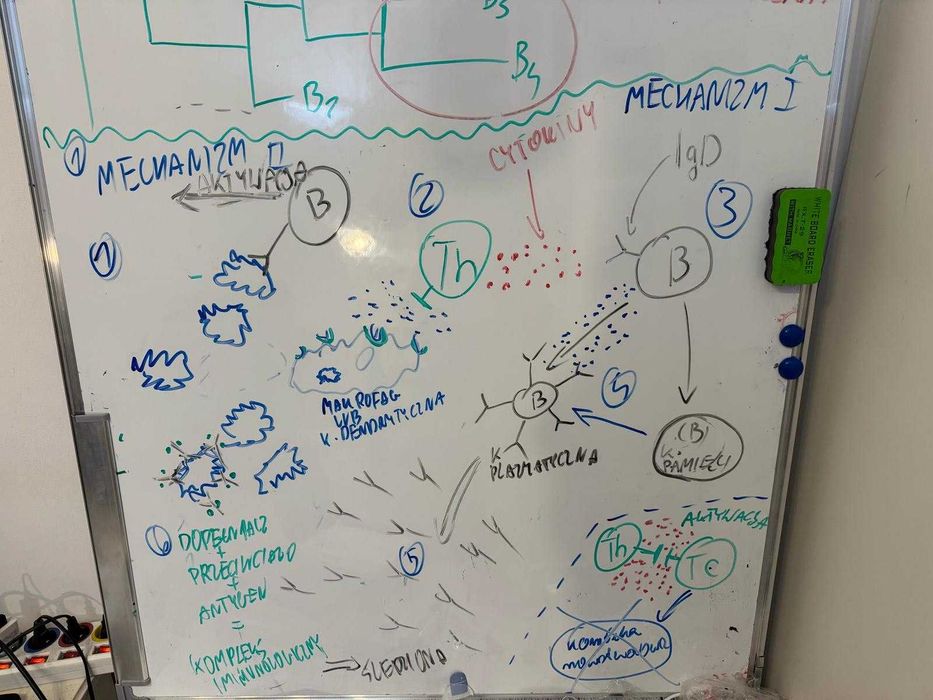 B3
B4
B2
MECHANIZM I
CYTOKINY
IgD
1
MECHANIZM II
AKTYWACJA
B
2
3
1
Th
B
WHITE BOARD ERASER
MAKROFAG
LUB
K. DENDRYTYCZNA
B
K.
PLAZMATYCZNA
(B)
K.
PAMIĘCI
AKTYWACJA
Th
Tc
6
DOPEŁNIACZ
+
PRZECIWCIAŁO
+
ANTYGEN
=
KOMPLEKS
IMMUNOLOGICZNY
ŚLEDZIONA
5
komórka
nowotworowa